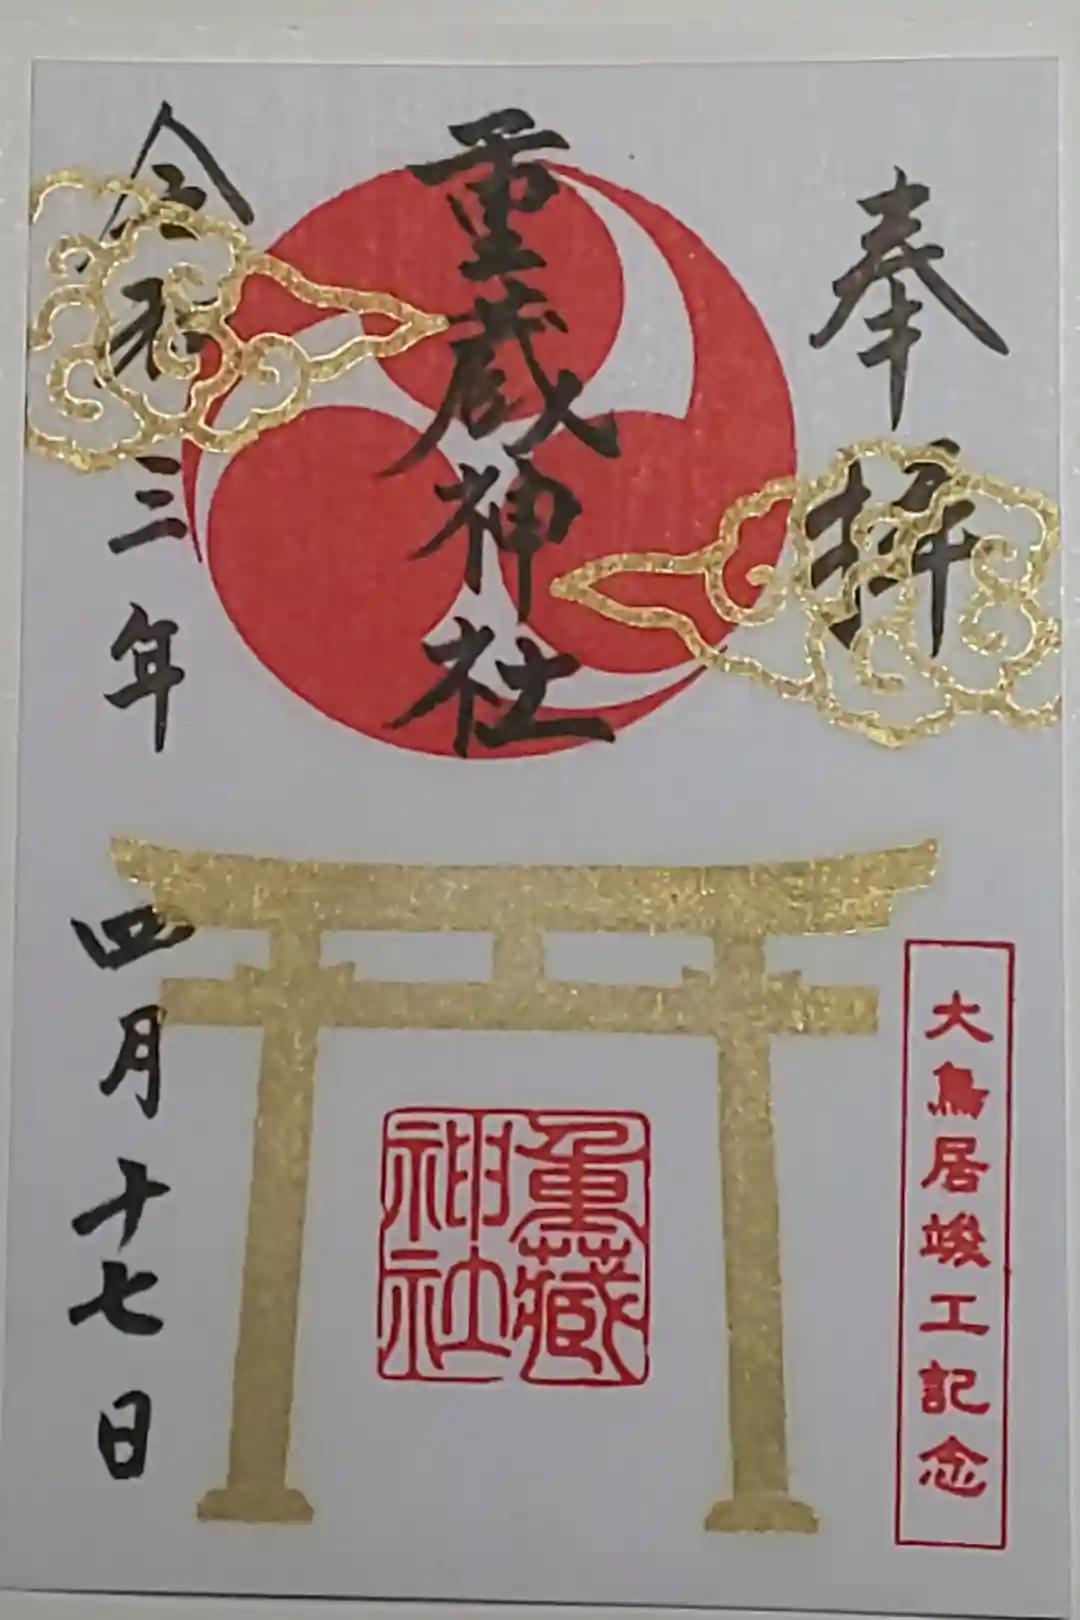 奉拝
重蔵神社
令和三年四月十七日
大鳥居竣工記念
重藏
神社